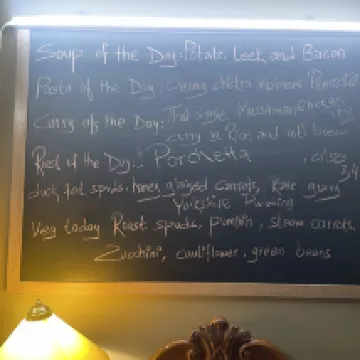 Soup of the Day: Potato Leek and Bacon
Pasta of the Day: Creamy chicken
Curry of the Day: Thai style Massaman Chicken
curry & Rice and
Roast of the Day: Porchetta
duck fat spuds, honey glazed Carrots, Kale gravy
Yorkshire Pudding
Veg today Roast spuds, pumpkin, steam carrots,
Zucchini, cauliflower, green beans